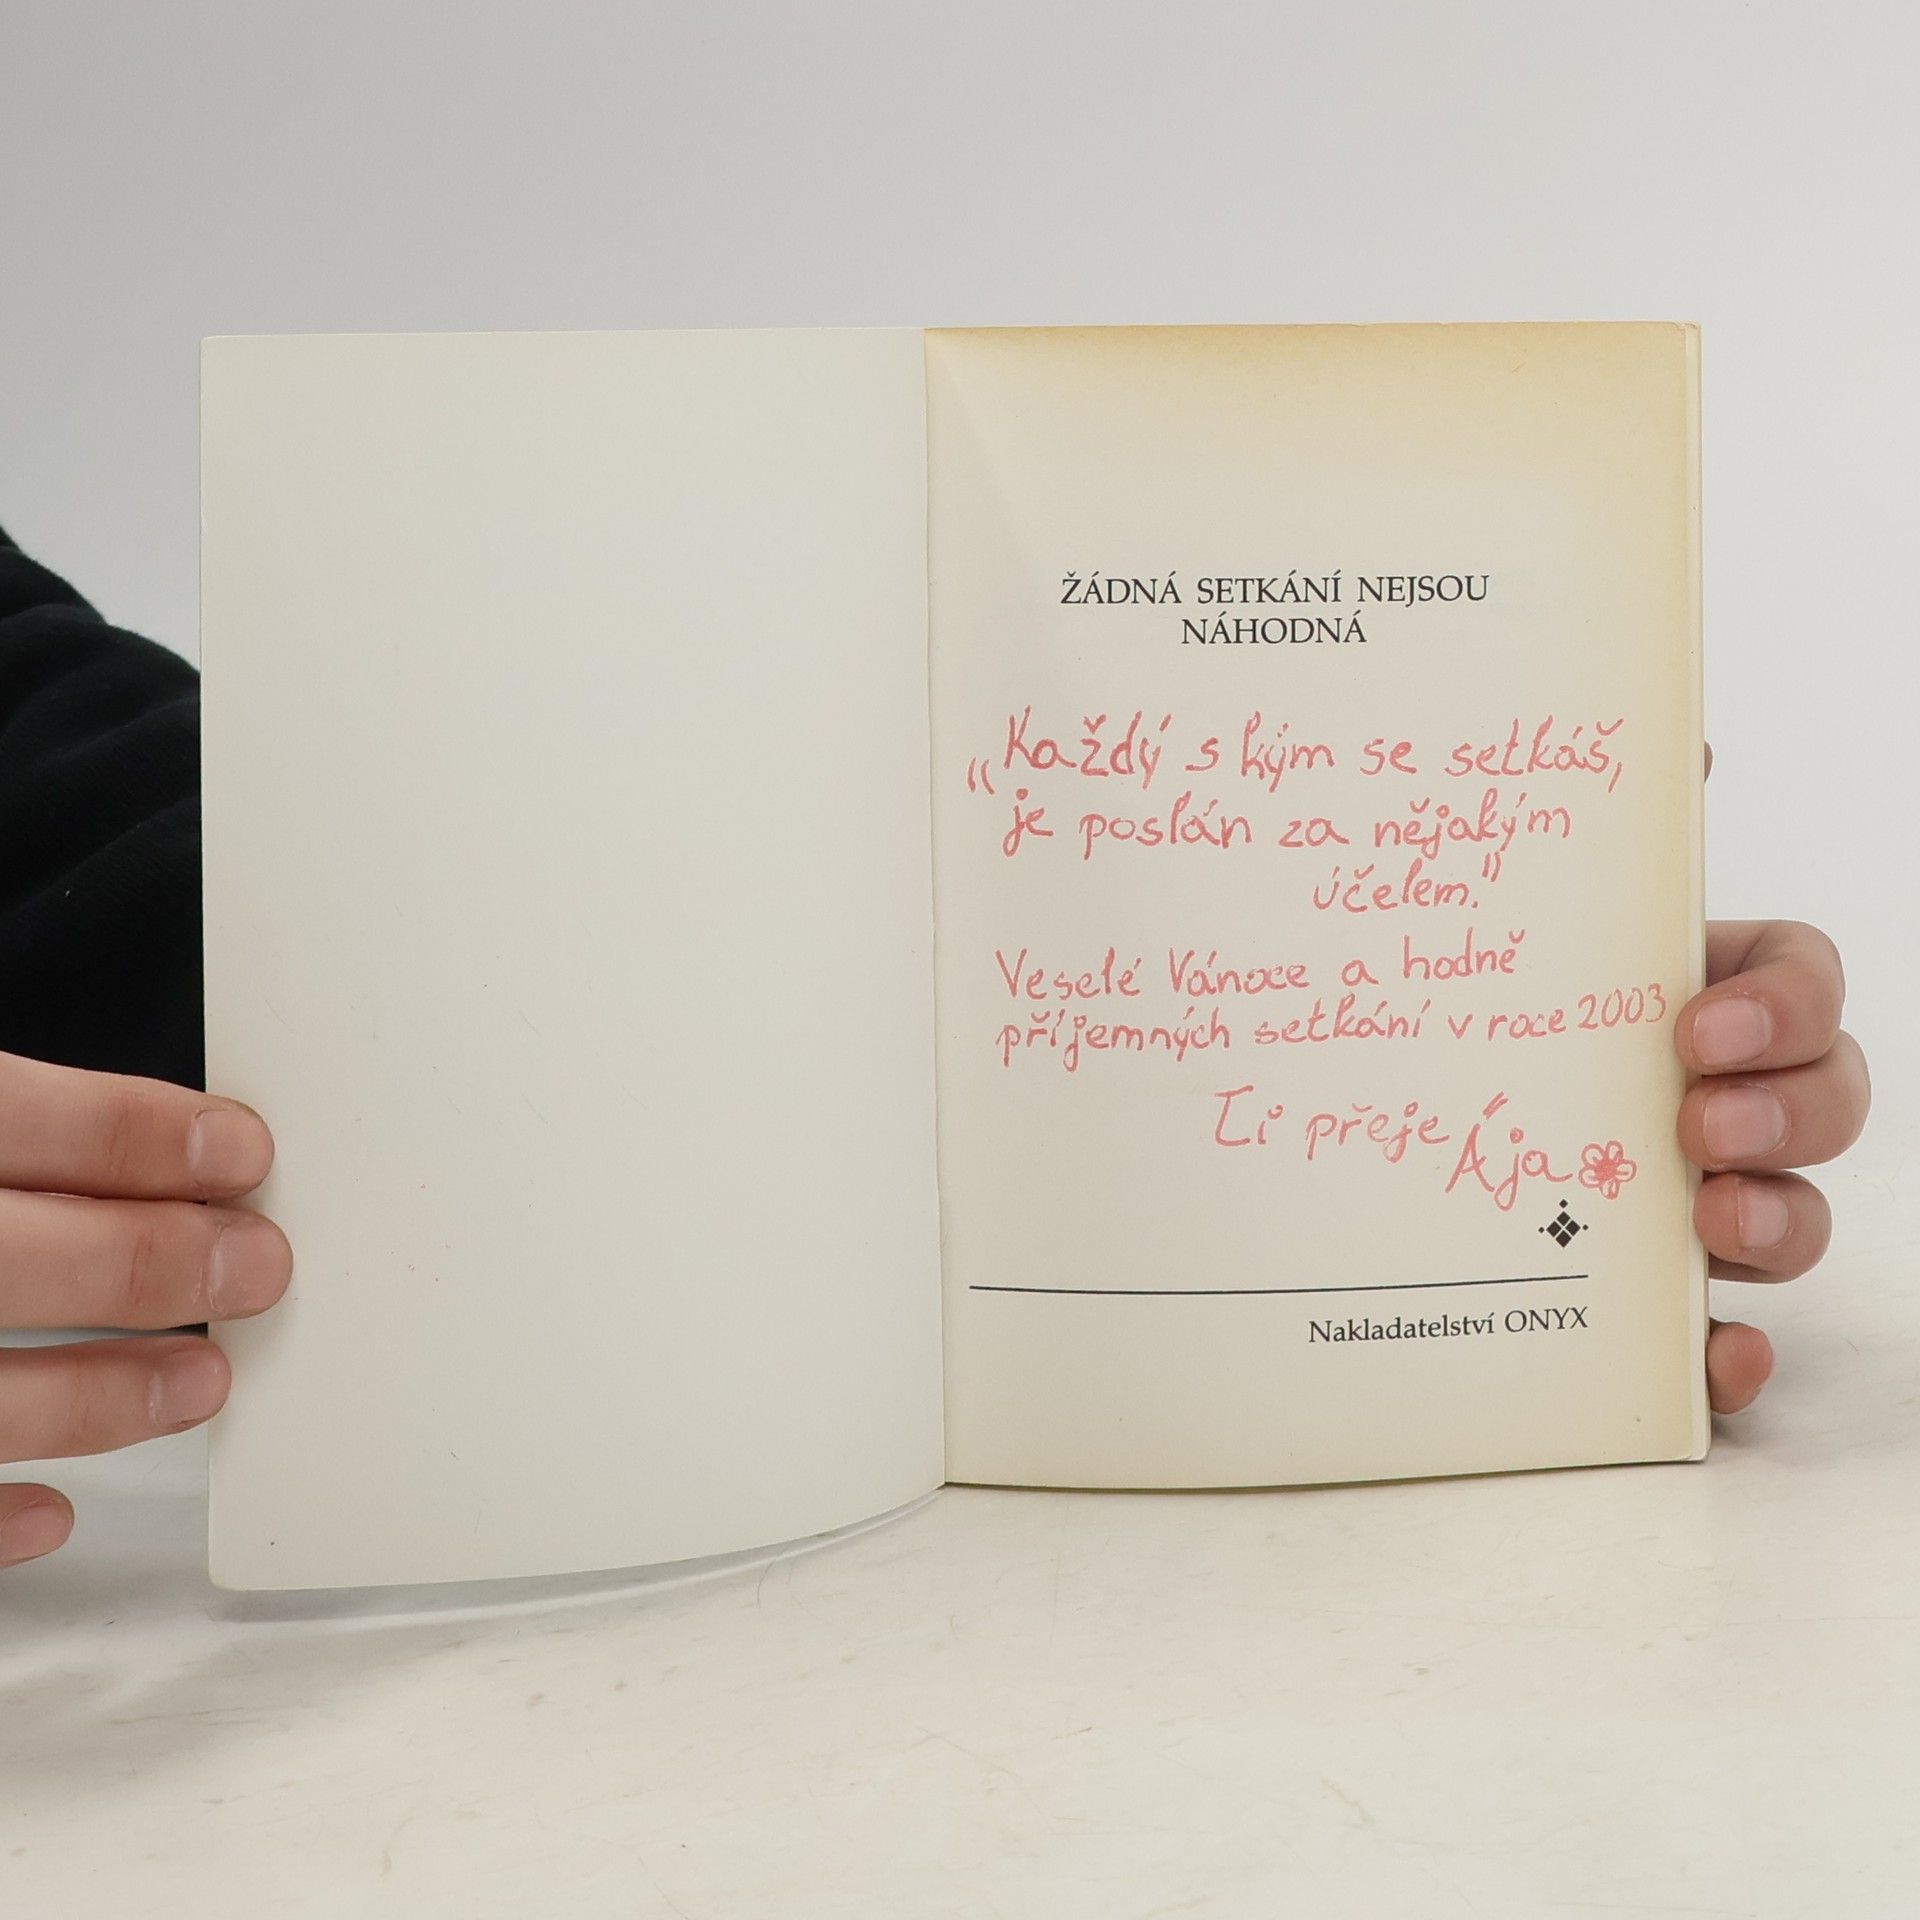 ŽÁDNÁ SETKÁNÍ NEJSOU
NÁHODNÁ
„Každý s kým se setkáš,
je poslán za nějakým
účelem."
Veselé Vánoce a hodně
příjemných setkání v roce 2003
Ti přeje Ája
Nakladatelství ONYX